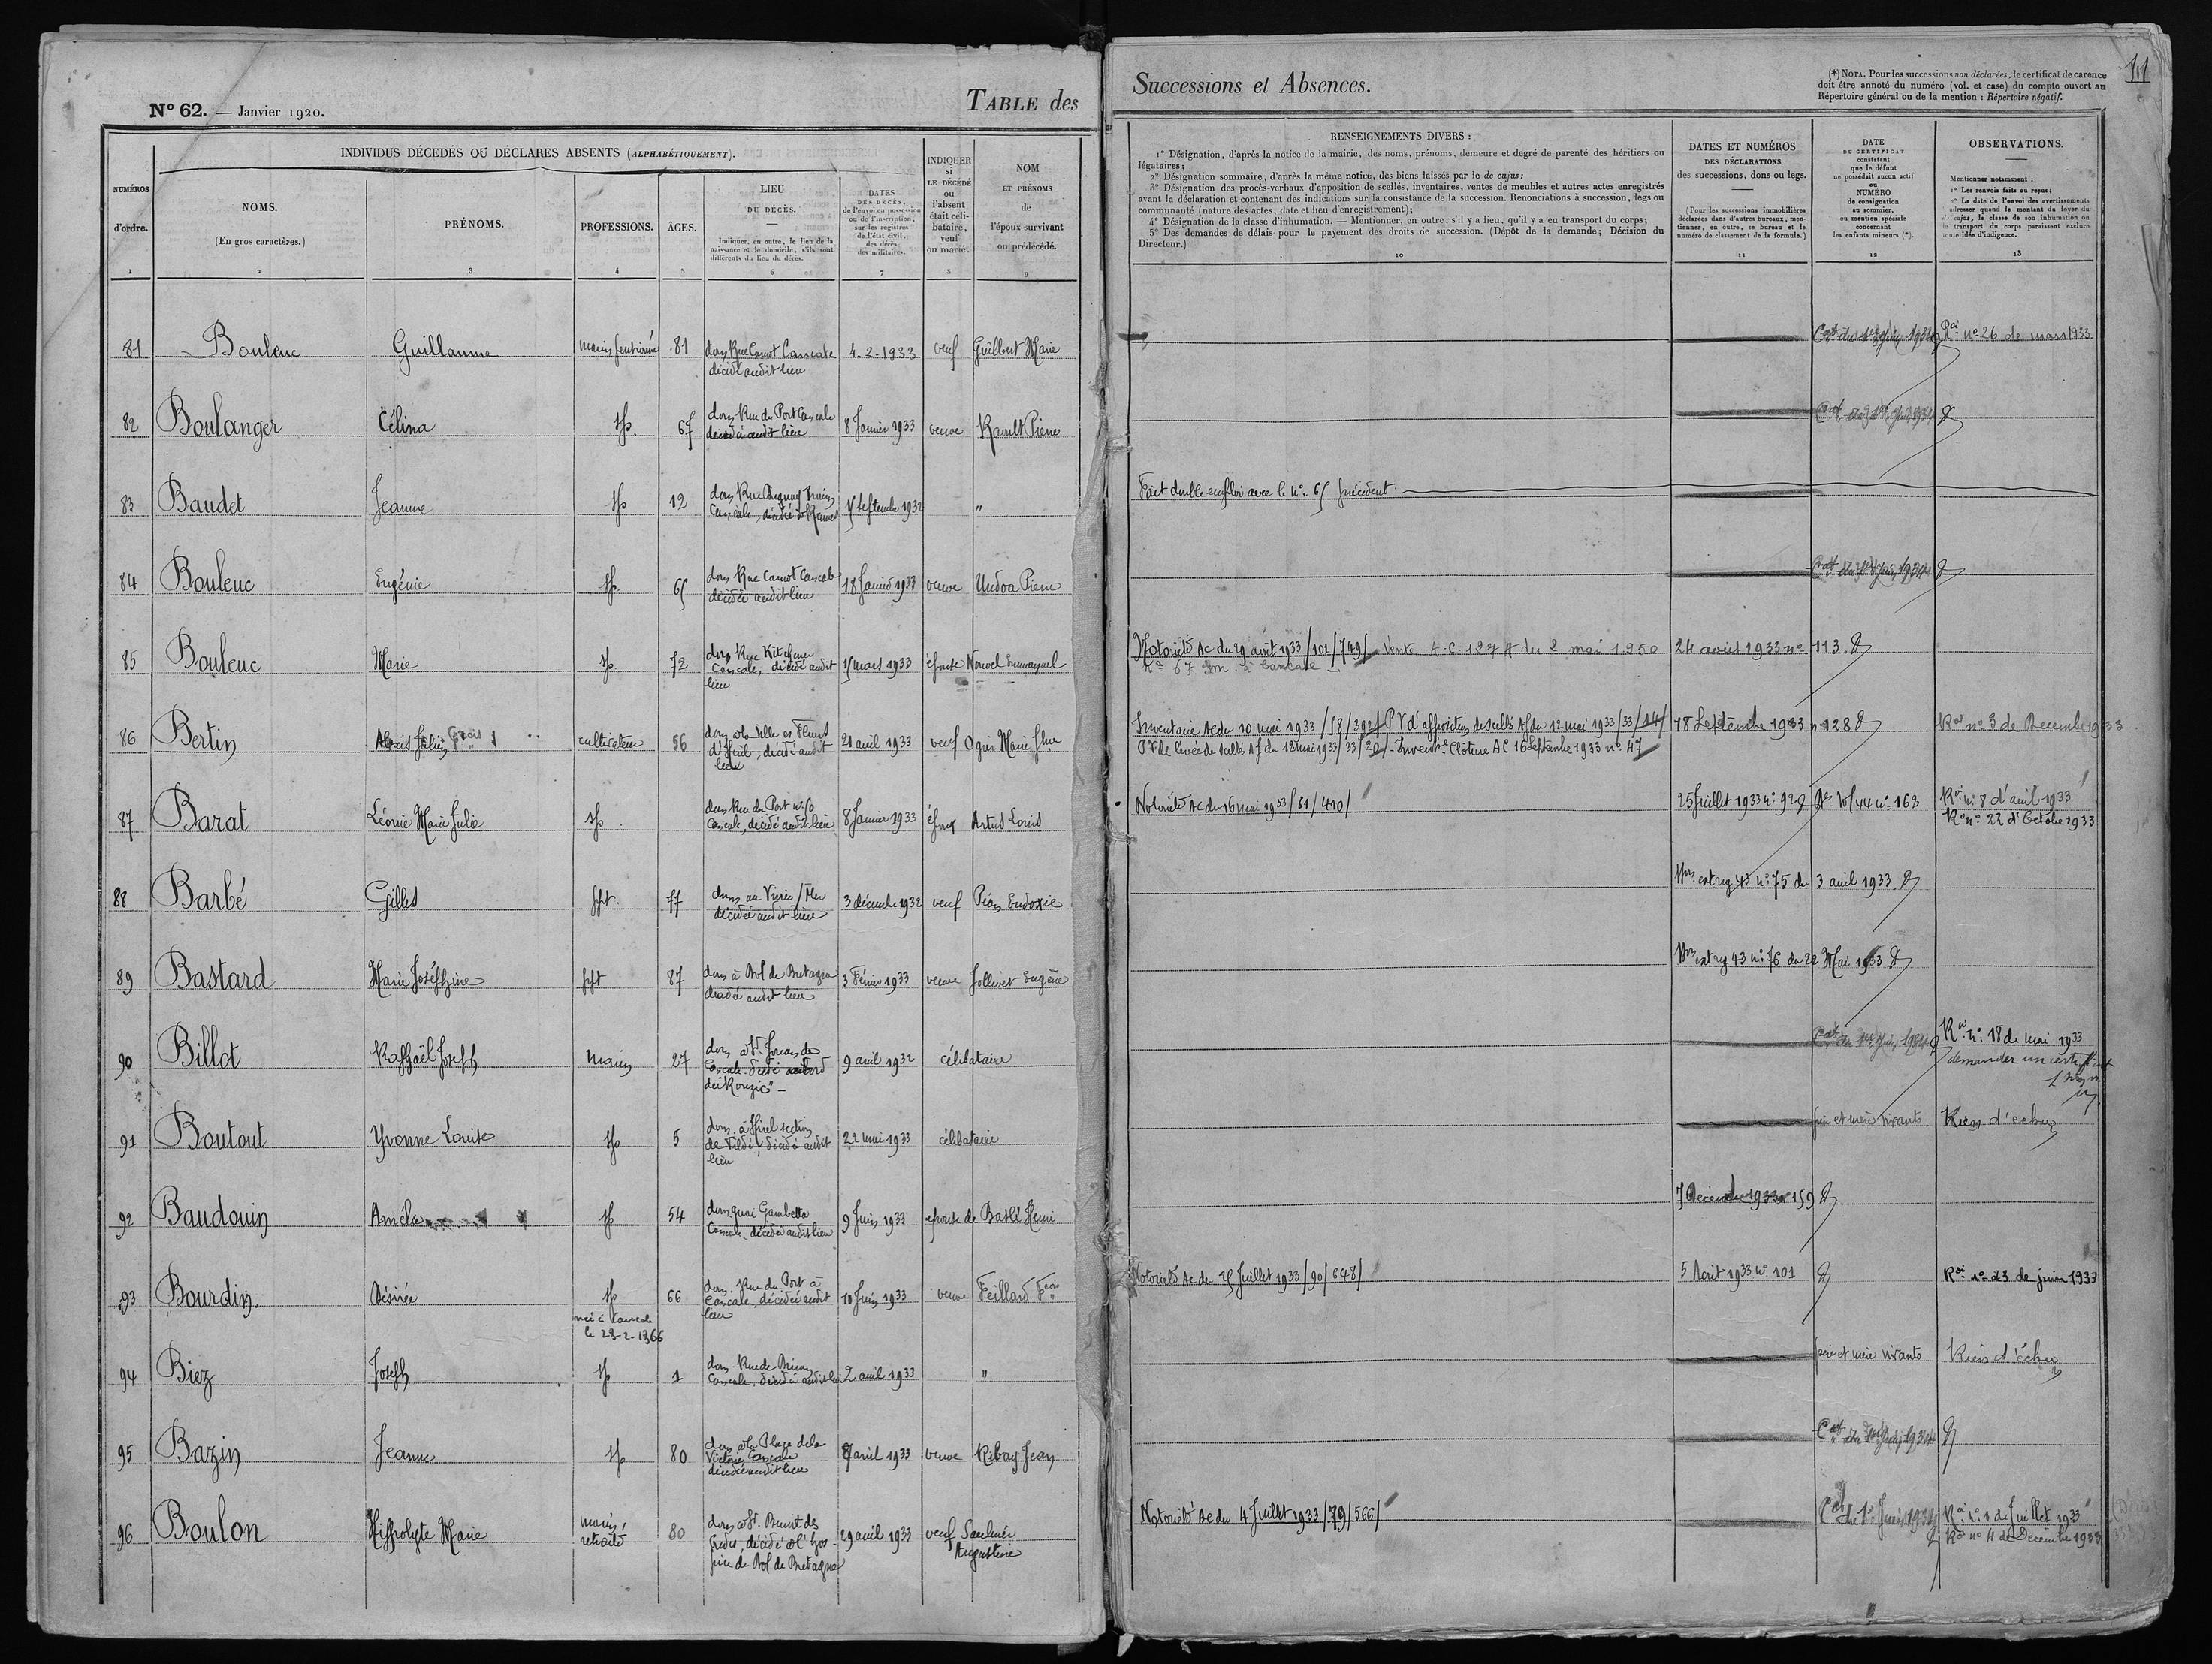 N° 62. — Janvier 1920.
TABLE des
INDIVIDUS DÉCÉDÉS OU DÉCLARÉS ABSENTS (ALPHABÉTIQUEMENT).
NUMÉROS
d'ordre.
1
NOMS.
(En gros caractères.)
2
PRÉNOMS.
3
PROFESSIONS.
4
ÂGES.
5
LIEU
DU DÉCÈS.
Indiquer, en outre, le lieu de la
naissance et le domicile, s'ils sont
différents du lieu du décès.
6
DATES
DES DÉCÈS,
de l'envoi en possession
ou de l'inscription,
sur les registres
de l'état civil,
des décès
des militaires.
7
INDIQUER
si
LE DÉCÉDÉ
ou
l'absent
était céli-
bataire,
veuf
ou marié.
8
NOM
ET PRÉNOMS
de
l'époux survivant
ou prédécédé.
9
81 Bouleuc Guillaume 81 4-2-1933 veuf Guilbert Marie
décédé audit lieu
82 Boulanger Célina sp. 67 dom Rue du Port Cancale 8 Janvier 1933 veuve Raoult Pierre
décédée audit lieu
83 Baudet Jeanne sp 12 septembre 1932 "
Cancale, décédée à Rennes
84 Bouleuc Eugénie sp. 65 dom Rue Carnot Cancale 18 Janvier 1933 veuve Undoa Pierre
décédée audit lieu
85 Bouleuc Marie sp. 72 dom Rue Kitchener mars 1933 épouse Nouvel Emmanuel
Cancale, décédé audit
lieu
86 Bertin cultivateur 56 21 avril 1933 veuf
décédé audit
lieu
87 Barat Léonie Marie Julie sp. dom Rue du Port 8 Janvier 1933 Artus Louis
Cancale, décédé audit lieu
88 Barbé Gilles ppt. 77 3 décembre 1932 veuf Pean Eudoxie
décédé audit lieu
89 Bastard Marie Joséphine ppt 87 dom à Dol de Bretagne 3 Février 1933 veuve Jollivet Eugène
décédée audit lieu
90 Billot Raphaël Joseph marin 27 9 avril 1932 célibataire
91 Boutout Yvonne Louise sp 5 22 mai 1933 célibataire
décédée audit
lieu
92 Baudouin Amélie sp 54 dom quai Gambetta 9 Juin 1933 épouse de Baslé Henri
Cancale décédée audit lieu
93 Bourdin. Désirée sp 66 dom. Rue du Port à 10 Juin 1933 veuve Feillard
Cancale, décédée audit
lieu
née à Cancale
le 23-2-1866
94 Biez Joseph sp 1 2 avril 1933 "
95 Bazin Jeanne sp 80 dom à la Place de la avril 1933 veuve Ribay Jean
Victoire Cancale
décédée audit lieu
96 Boulon Hippolyte Marie marin 80 29 avril 1933 veuf Saulnier
retraité Augustine
décédé à l'hos-
pice de Dol de Bretagne
Successions et Absences.
(*) NOTA. Pour les successions non déclarées, le certificat de carence
doit être annoté du numéro (vol. et case) du compte ouvert au
Répertoire général ou de la mention : Répertoire négatif.
11
RENSEIGNEMENTS DIVERS :
1° Désignation, d'après la notice de la mairie, des noms, prénoms, demeure et degré de parenté des héritiers ou
légataires;
2° Désignation sommaire, d'après la même notice, des biens laissés par le de cujus;
3° Désignation des procès-verbaux d'apposition de scellés, inventaires, ventes de meubles et autres actes enregistrés
avant la déclaration et contenant des indications sur la consistance de la succession. Renonciations à succession, legs ou
communauté (nature des actes, date et lieu d'enregistrement);
4° Désignation de la classe d'inhumation. — Mentionner, en outre, s'il y a lieu, qu'il y a eu transport du corps;
5° Des demandes de délais pour le payement des droits de succession. (Dépôt de la demande; Décision du
Directeur.)
10
DATES ET NUMÉROS
DES DÉCLARATIONS
des successions, dons ou legs.
(Pour les successions immobilières
déclarées dans d'autres bureaux, men-
tionner, en outre, ce bureau et le
numéro de classement de la formule.)
11
DATE
DU CERTIFICAT
constatant
que le défunt
ne possédait aucun actif
ou
NUMÉRO
de consignation
au sommier,
ou mention spéciale
concernant
les enfants mineurs (*).
12
OBSERVATIONS.
Mentionner notamment :
1° Les renvois faits ou reçus;
2° La date de l'envoi des avertissements
à adresser quand le montant du loyer du
de cujus, la classe de son inhumation ou
le transport du corps paraissent exclure
toute idée d'indigence.
13
Cat du 1er Juin 1934 Roi n° 26 de mars 1933
Cat du 1er Juin 1934
Fait double emploi avec le n° 65 précédent
Cat du 1er Juin 1934
Notoriété Ac du 29 août 1933/101/749/ Vente A.C. 127 A du 2 mai 1950 24 août 1933 n° 113
n° 67 à Cancale
Inventaire Ac du 10 mai 1933/58/392/ PV d'apposition de scellés AJ du 12 mai 1933/33/14/ 18 Septembre 1933 n° 128 Roi n° 3 de Décembre 1933
PV de levée de scellés AJ du 12 mai 1933/33/20/ - Clôture AC 16 Septembre 1933 n° 47
Notoriété Ac du 16 mai 1933/61/410/ 25 Juillet 1933 n° 92 Vol 44 n° 163 Roi n° 8 d'avril 1933
Roi n° 22 d'Octobre 1933
43 n° 75 du 3 avril 1933
43 n° 76 du 22 Mai 1933
Cat du 1er Juin 1934 Roi n° 18 de mai 1933
demander un certificat
père et mère vivants Rien d'échu
7 Décembre 1933 n° 159
Notoriété Ac du 25 Juillet 1933/90/648/ 5 Août 1933 n° 101 Roi n° 23 de juin 1933
père et mère vivants Rien d'échu
Cat du 1er Juin 1934
Notoriété Ac du 4 Juillet 1933/79/566/ Cat du 1er Juin 1934 Roi n° 1 de Juillet 1933
Roi n° 4 de Décembre 1933